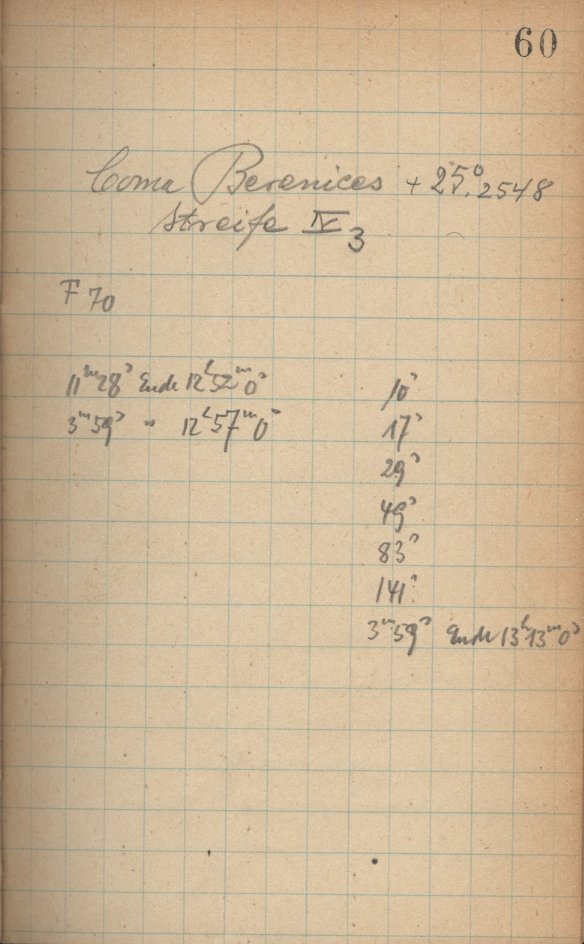 60
Coma Berenices + 25°.2548
Streife IV 3
F 70
11ᵐ28ˢ Ende 12ʰ52ᵐ0ˢ
3ᵐ59ˢ " 12ʰ57ᵐ0ˢ
10ˢ
17ˢ
29ˢ
49ˢ
83ˢ
141ˢ
3ᵐ59ˢ Ende 13ʰ13ᵐ0ˢ